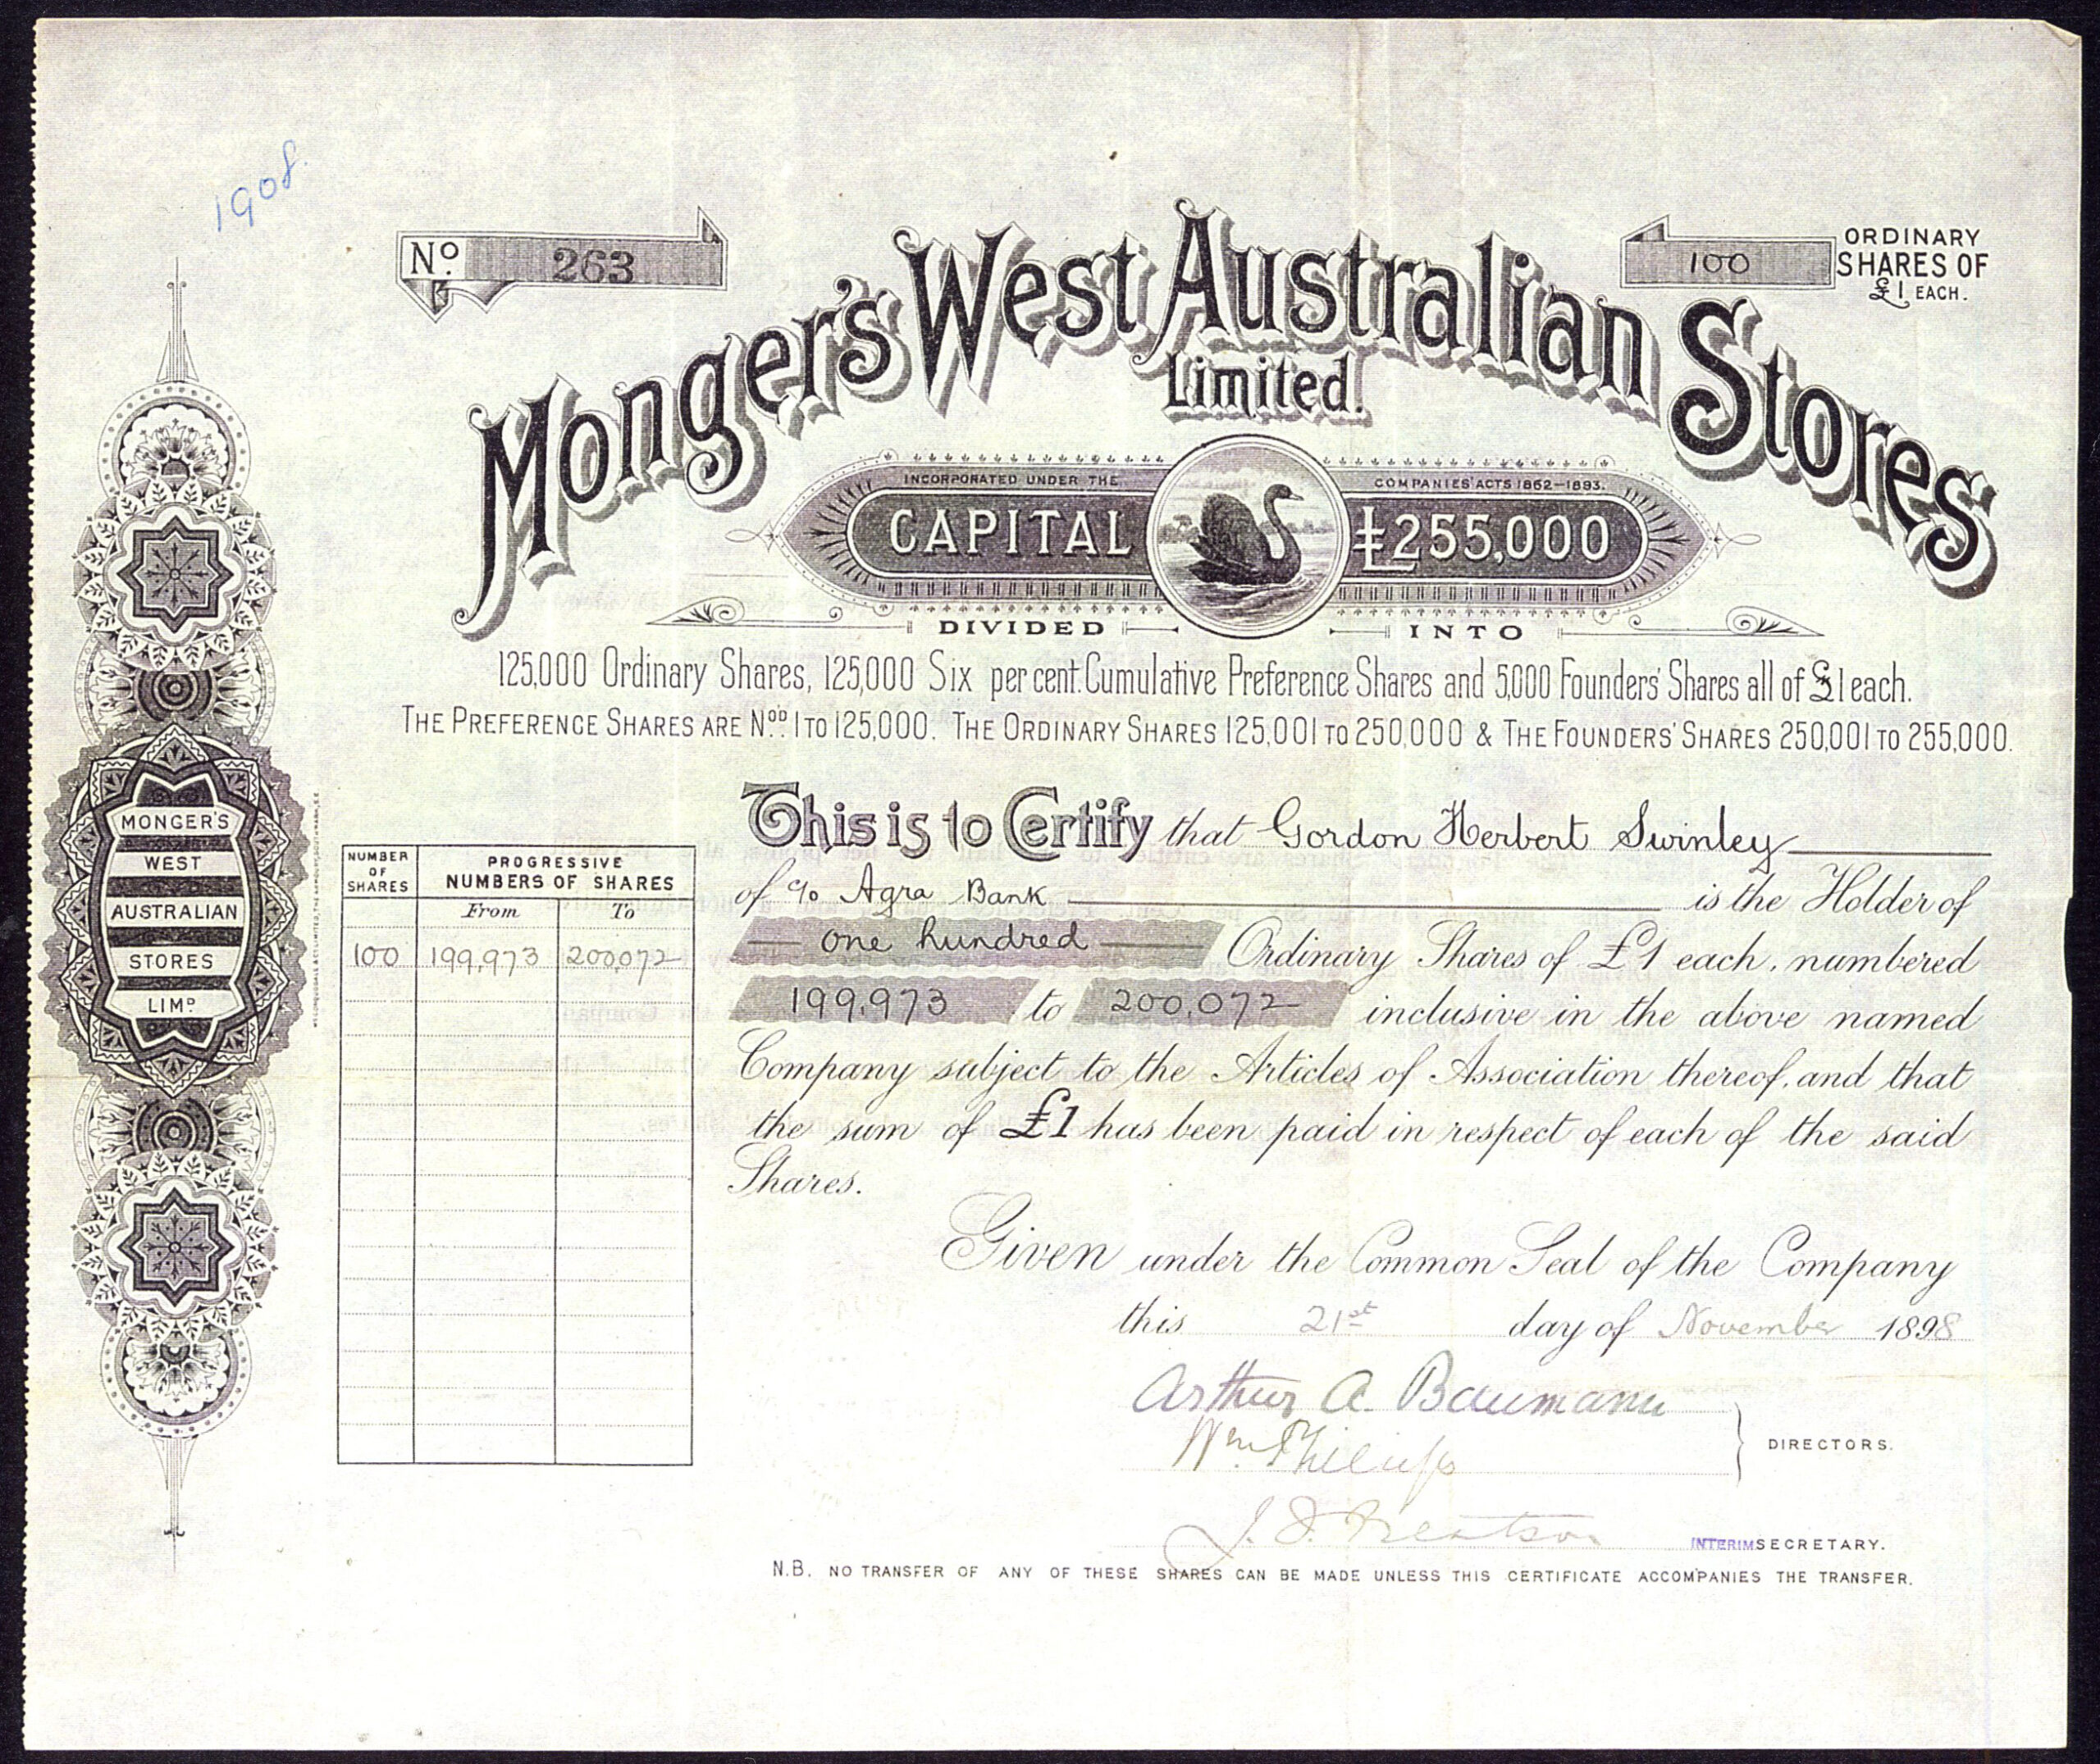 1908.
No. 263
100 ORDINARY SHARES OF £1 EACH.
Monger's West Australian Stores
Limited.
INCORPORATED UNDER THE COMPANIES' ACTS 1862–1893.
CAPITAL £255,000
DIVIDED INTO
125,000 Ordinary Shares, 125,000 Six per cent. Cumulative Preference Shares and 5,000 Founders' Shares all of £1 each.
THE PREFERENCE SHARES ARE Nos. 1 TO 125,000. THE ORDINARY SHARES 125,001 TO 250,000 & THE FOUNDERS' SHARES 250,001 TO 255,000.
MONGER'S
WEST
AUSTRALIAN
STORES
LIMD.
NUMBER OF SHARES
PROGRESSIVE NUMBERS OF SHARES
From To
100 199,973 200,072
This is to Certify that Gordon Herbert Swinley
of c/o Agra Bank is the Holder of
one hundred Ordinary Shares of £1 each, numbered
199,973 to 200,072 inclusive in the above named
Company subject to the Articles of Association thereof, and that
the sum of £1 has been paid in respect of each of the said
Shares.
Given under the Common Seal of the Company
this 21st day of November 1898
Arthur A. Baumann
Wm. Phillips
DIRECTORS.
INTERIM SECRETARY.
N.B. NO TRANSFER OF ANY OF THESE SHARES CAN BE MADE UNLESS THIS CERTIFICATE ACCOMPANIES THE TRANSFER.